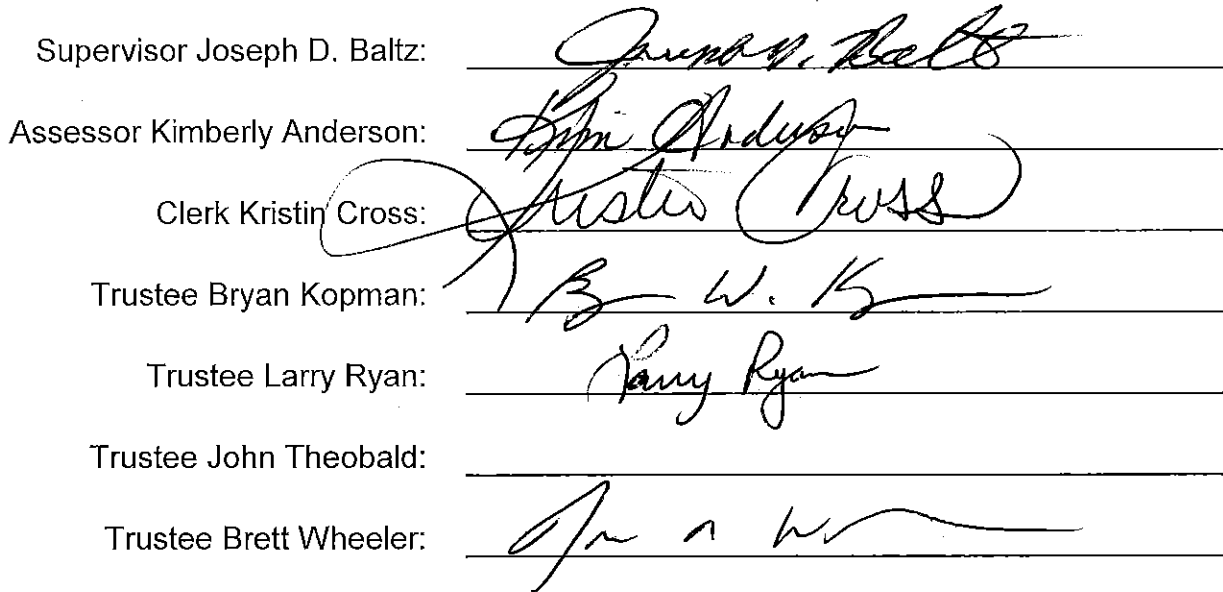 Supervisor Joseph D. Baltz: Joseph D. Baltz
Assessor Kimberly Anderson: Kim Anderson
Clerk Kristin Cross: Kristin Cross
Trustee Bryan Kopman: B W. K
Trustee Larry Ryan: Larry Ryan
Trustee John Theobald:
Trustee Brett Wheeler: